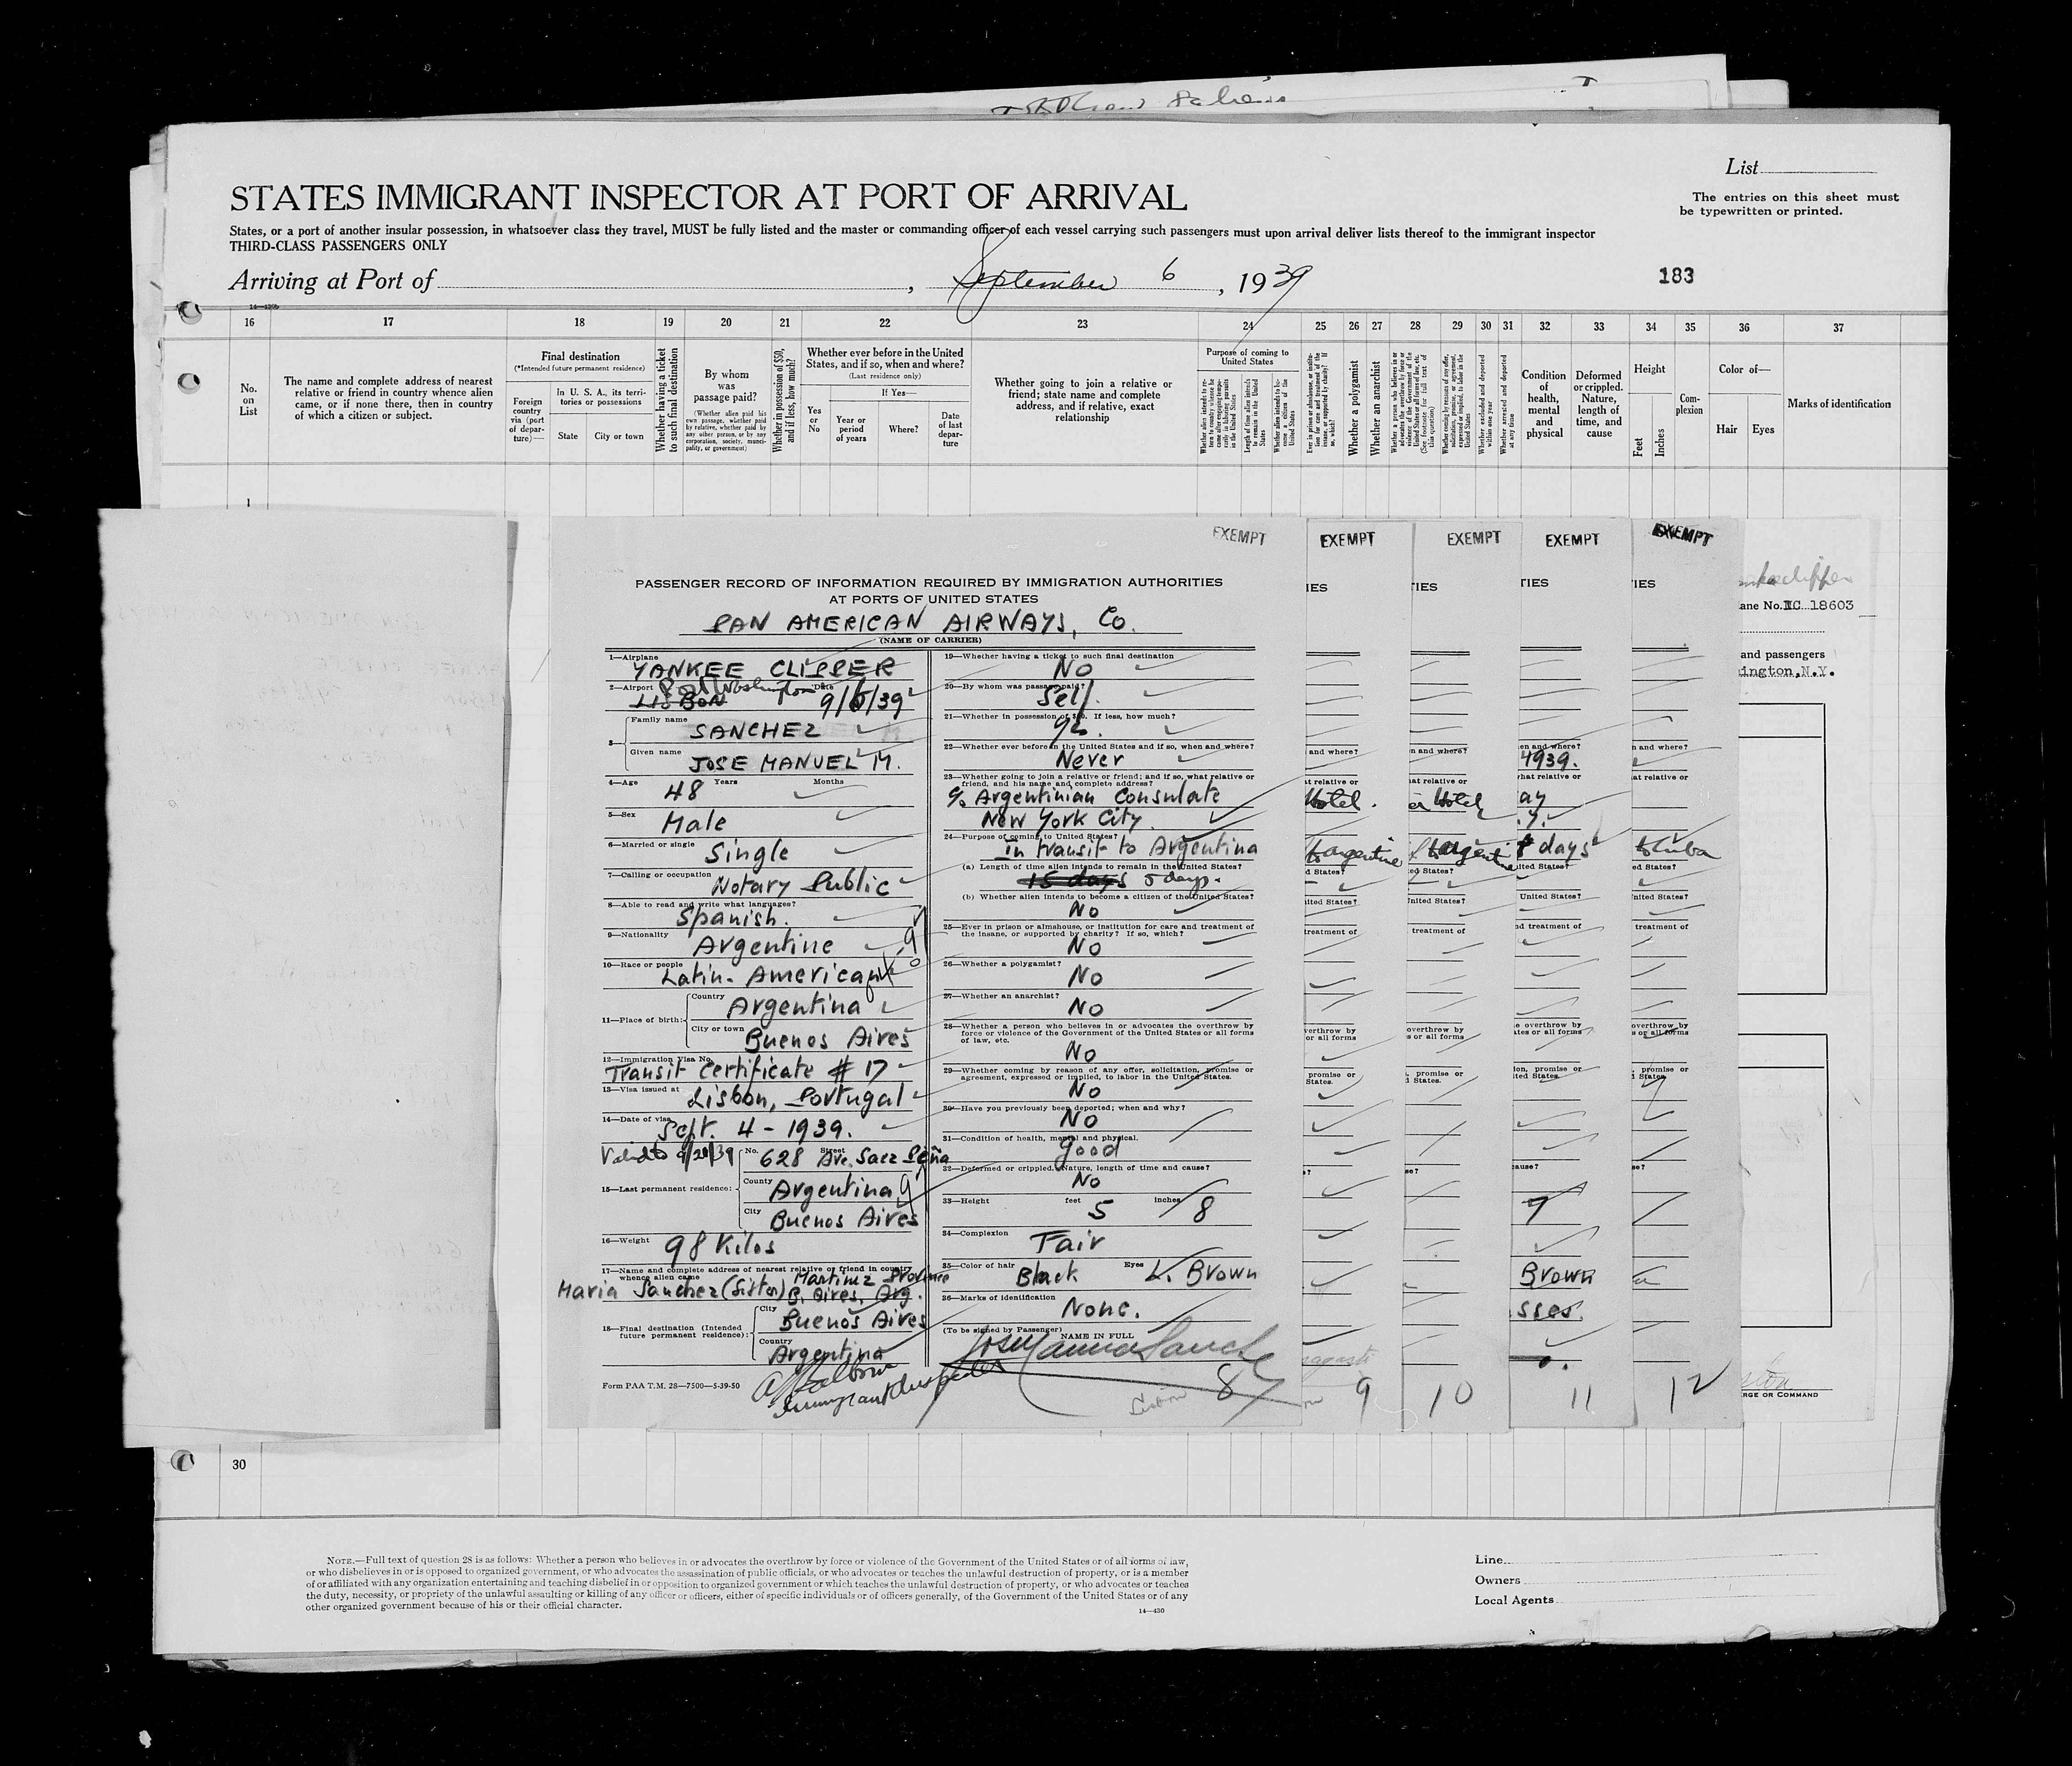 List
STATES IMMIGRANT INSPECTOR AT PORT OF ARRIVAL
The entries on this sheet must
be typewritten or printed.
States, or a port of another insular possession, in whatsoever class they travel, MUST be fully listed and the master or commanding officer of each vessel carrying such passengers must upon arrival deliver lists thereof to the immigrant inspector
THIRD-CLASS PASSENGERS ONLY
Arriving at Port of , September 6 , 1939
183
16 17 18 19 20 21 22 23 24 25 26 27 28 29 30 31 32 33 34 35 36 37
No.
on
List
The name and complete address of nearest
relative or friend in country whence alien
came, or if none there, then in country
of which a citizen or subject.
Final destination
(*Intended future permanent residence)
Foreign
country
via (port
of depar-
ture)—
In U. S. A., its terri-
tories or possessions
State
City or town
Whether having a ticket
to such final destination
By whom
was
passage paid?
(Whether alien paid his
own passage, whether paid
by relative, whether paid by
any other person, or by any
corporation, society, munici-
pality, or government)
Whether in possession of $50,
and if less, how much?
Whether ever before in the United
States, and if so, when and where?
(Last residence only)
Yes
or
No
If Yes—
Year or
period
of years
Where?
Date
of last
depar-
ture
Whether going to join a relative or
friend; state name and complete
address, and if relative, exact
relationship
Purpose of coming to
United States
Whether a polygamist
Whether an anarchist
Condition
of
health,
mental
and
physical
Deformed
or crippled.
Nature,
length of
time, and
cause
Height
Feet
Inches
Com-
plexion
Color of—
Hair
Eyes
Marks of identification
1
EXEMPT
EXEMPT
EXEMPT
EXEMPT
EXEMPT
PASSENGER RECORD OF INFORMATION REQUIRED BY IMMIGRATION AUTHORITIES
AT PORTS OF UNITED STATES
PAN AMERICAN AIRWAYS, Co.
(NAME OF CARRIER)
1—Airplane YANKEE CLIPPER
2—Airport LISBON Port Washington Date 9/6/39
3— Family name SANCHEZ
Given name JOSE MANUEL M.
4—Age 48 Years Months
5—Sex Male
6—Married or single Single
7—Calling or occupation Notary Public
8—Able to read and write what languages?
Spanish.
9—Nationality Argentine
10—Race or people Latin-American
11—Place of birth: Country Argentina
City or town Buenos Aires
12—Immigration Visa No.
Transit Certificate # 17
13—Visa issued at Lisbon, Portugal
14—Date of visa Sept. 4 - 1939.
15—Last permanent residence: No. 628 Street Ave. Saez Peña
County Argentina
City Buenos Aires
16—Weight 98 Kilos
17—Name and complete address of nearest relative or friend in country
whence alien came Martinez Province
Maria Sanchez (Sister) B. Aires, Arg.
18—Final destination (Intended
future permanent residence): City Buenos Aires
Country Argentina
Form PAA T.M. 28—7500—5-39-50
Immigrant Inspector
19—Whether having a ticket to such final destination
No
20—By whom was passage paid?
Self.
21—Whether in possession of $50. If less, how much?
22—Whether ever before in the United States and if so, when and where?
Never
23—Whether going to join a relative or friend; and if so, what relative or
friend, and his name and complete address?
c/o Argentinian Consulate
New York City.
24—Purpose of coming to United States?
In transit to Argentina
(a) Length of time alien intends to remain in the United States?
15 days 5 days.
(b) Whether alien intends to become a citizen of the United States?
No
25—Ever in prison or almshouse, or institution for care and treatment of
the insane, or supported by charity? If so, which?
No
26—Whether a polygamist?
No
27—Whether an anarchist?
No
28—Whether a person who believes in or advocates the overthrow by
force or violence of the Government of the United States or all forms
of law, etc.
No
29—Whether coming by reason of any offer, solicitation, promise or
agreement, expressed or implied, to labor in the United States.
No
30—Have you previously been deported; when and why?
No
31—Condition of health, mental and physical.
good
32—Deformed or crippled. Nature, length of time and cause?
No
33—Height feet 5 inches 8
34—Complexion Fair
35—Color of hair Black Eyes L. Brown
36—Marks of identification
None.
(To be signed by Passenger)
NAME IN FULL
Lisbon 8
9
10
11
12
Hotel.
Hotel
to Argentine
8 days
to Cuba
1939.
7
Brown
NC 18603
and passengers
RGE OR COMMAND
30
NOTE.—Full text of question 28 is as follows: Whether a person who believes in or advocates the overthrow by force or violence of the Government of the United States or of all forms of law,
or who disbelieves in or is opposed to organized government, or who advocates the assassination of public officials, or who advocates or teaches the unlawful destruction of property, or is a member
of or affiliated with any organization entertaining and teaching disbelief in or opposition to organized government or which teaches the unlawful destruction of property, or who advocates or teaches
the duty, necessity, or propriety of the unlawful assaulting or killing of any officer or officers, either of specific individuals or of officers generally, of the Government of the United States or of any
other organized government because of his or their official character.
14—430
Line
Owners
Local Agents